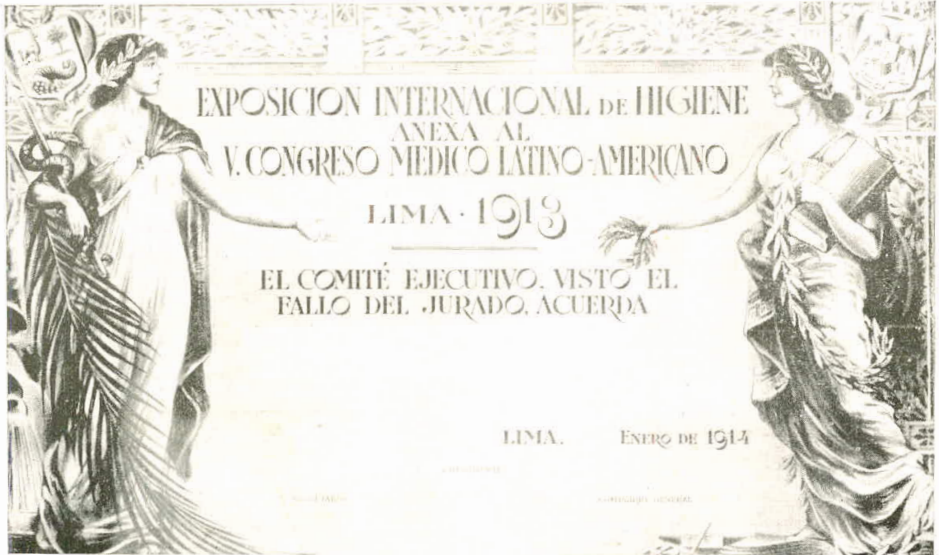 EXPOSICION INTERNACIONAL DE HIGIENE
ANEXA AL
V. CONGRESO MEDICO LATINO-AMERICANO
LIMA · 1913
EL COMITÉ EJECUTIVO. VISTO EL
FALLO DEL JURADO, ACUERDA
LIMA. ENERO DE 1914